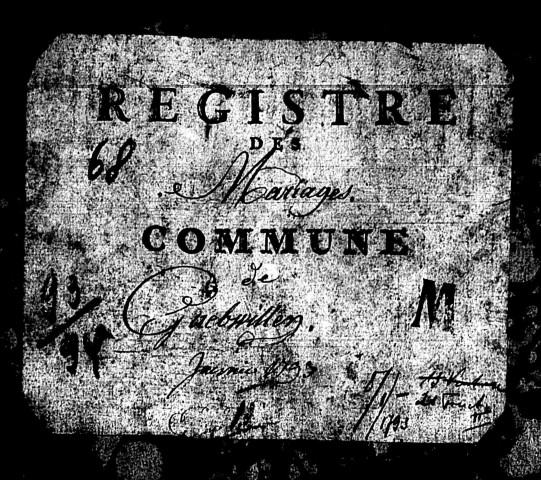 REGISTRE
DES
68
Mariages.
COMMUNE
de
Guebwiller.
93/94
M
Janvier 1793
1793